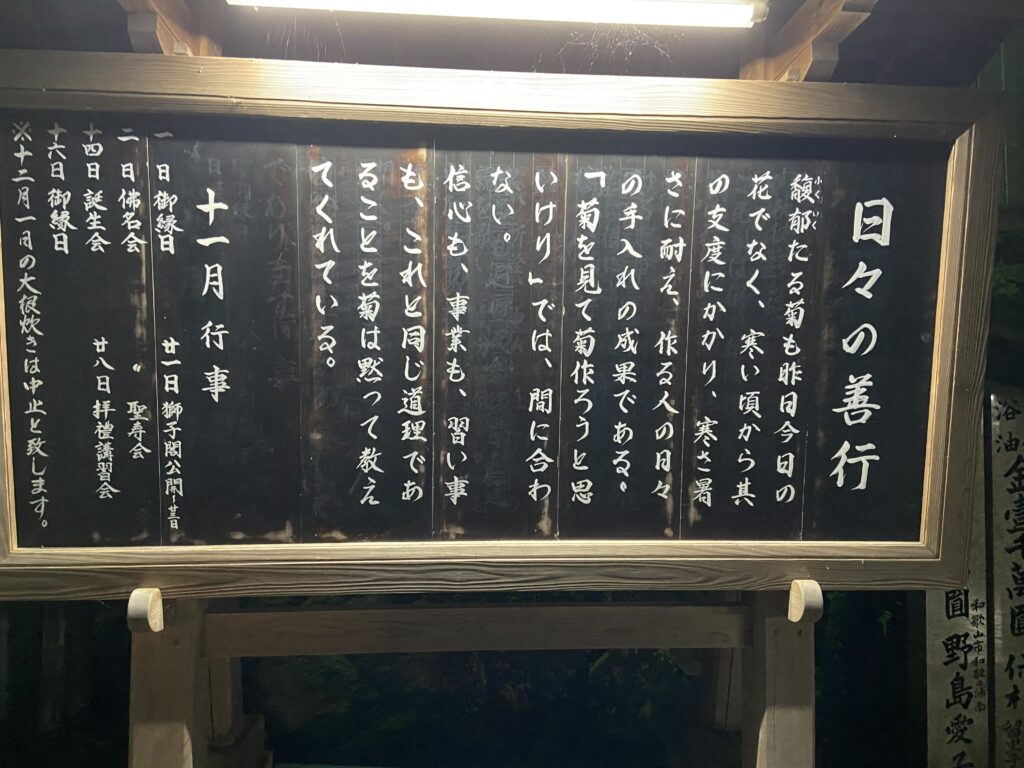 日々の善行
馥郁たる菊も昨日今日の
ふくいく
花でなく、寒い頃から其
の支度にかかり、寒さ暑
さに耐え、作る人の日々
の手入れの成果である。
「菊を見て菊作ろうと思
いけり」では、間に合わ
ない。
信心も、事業も、習い事
も、これと同じ道理であ
ることを菊は黙って教え
てくれている。
十一月 行事
一日 御縁日 廿一日 獅子閣公開〜廿三日
二日 佛名会 〃 聖寿会
十四日 誕生会 廿八日 拝禮講習会
十六日 御縁日
※十二月一日の大根炊きは中止と致します。
浴油
金壹千萬圓
和歌山市和歌の浦南
圓 野島愛子